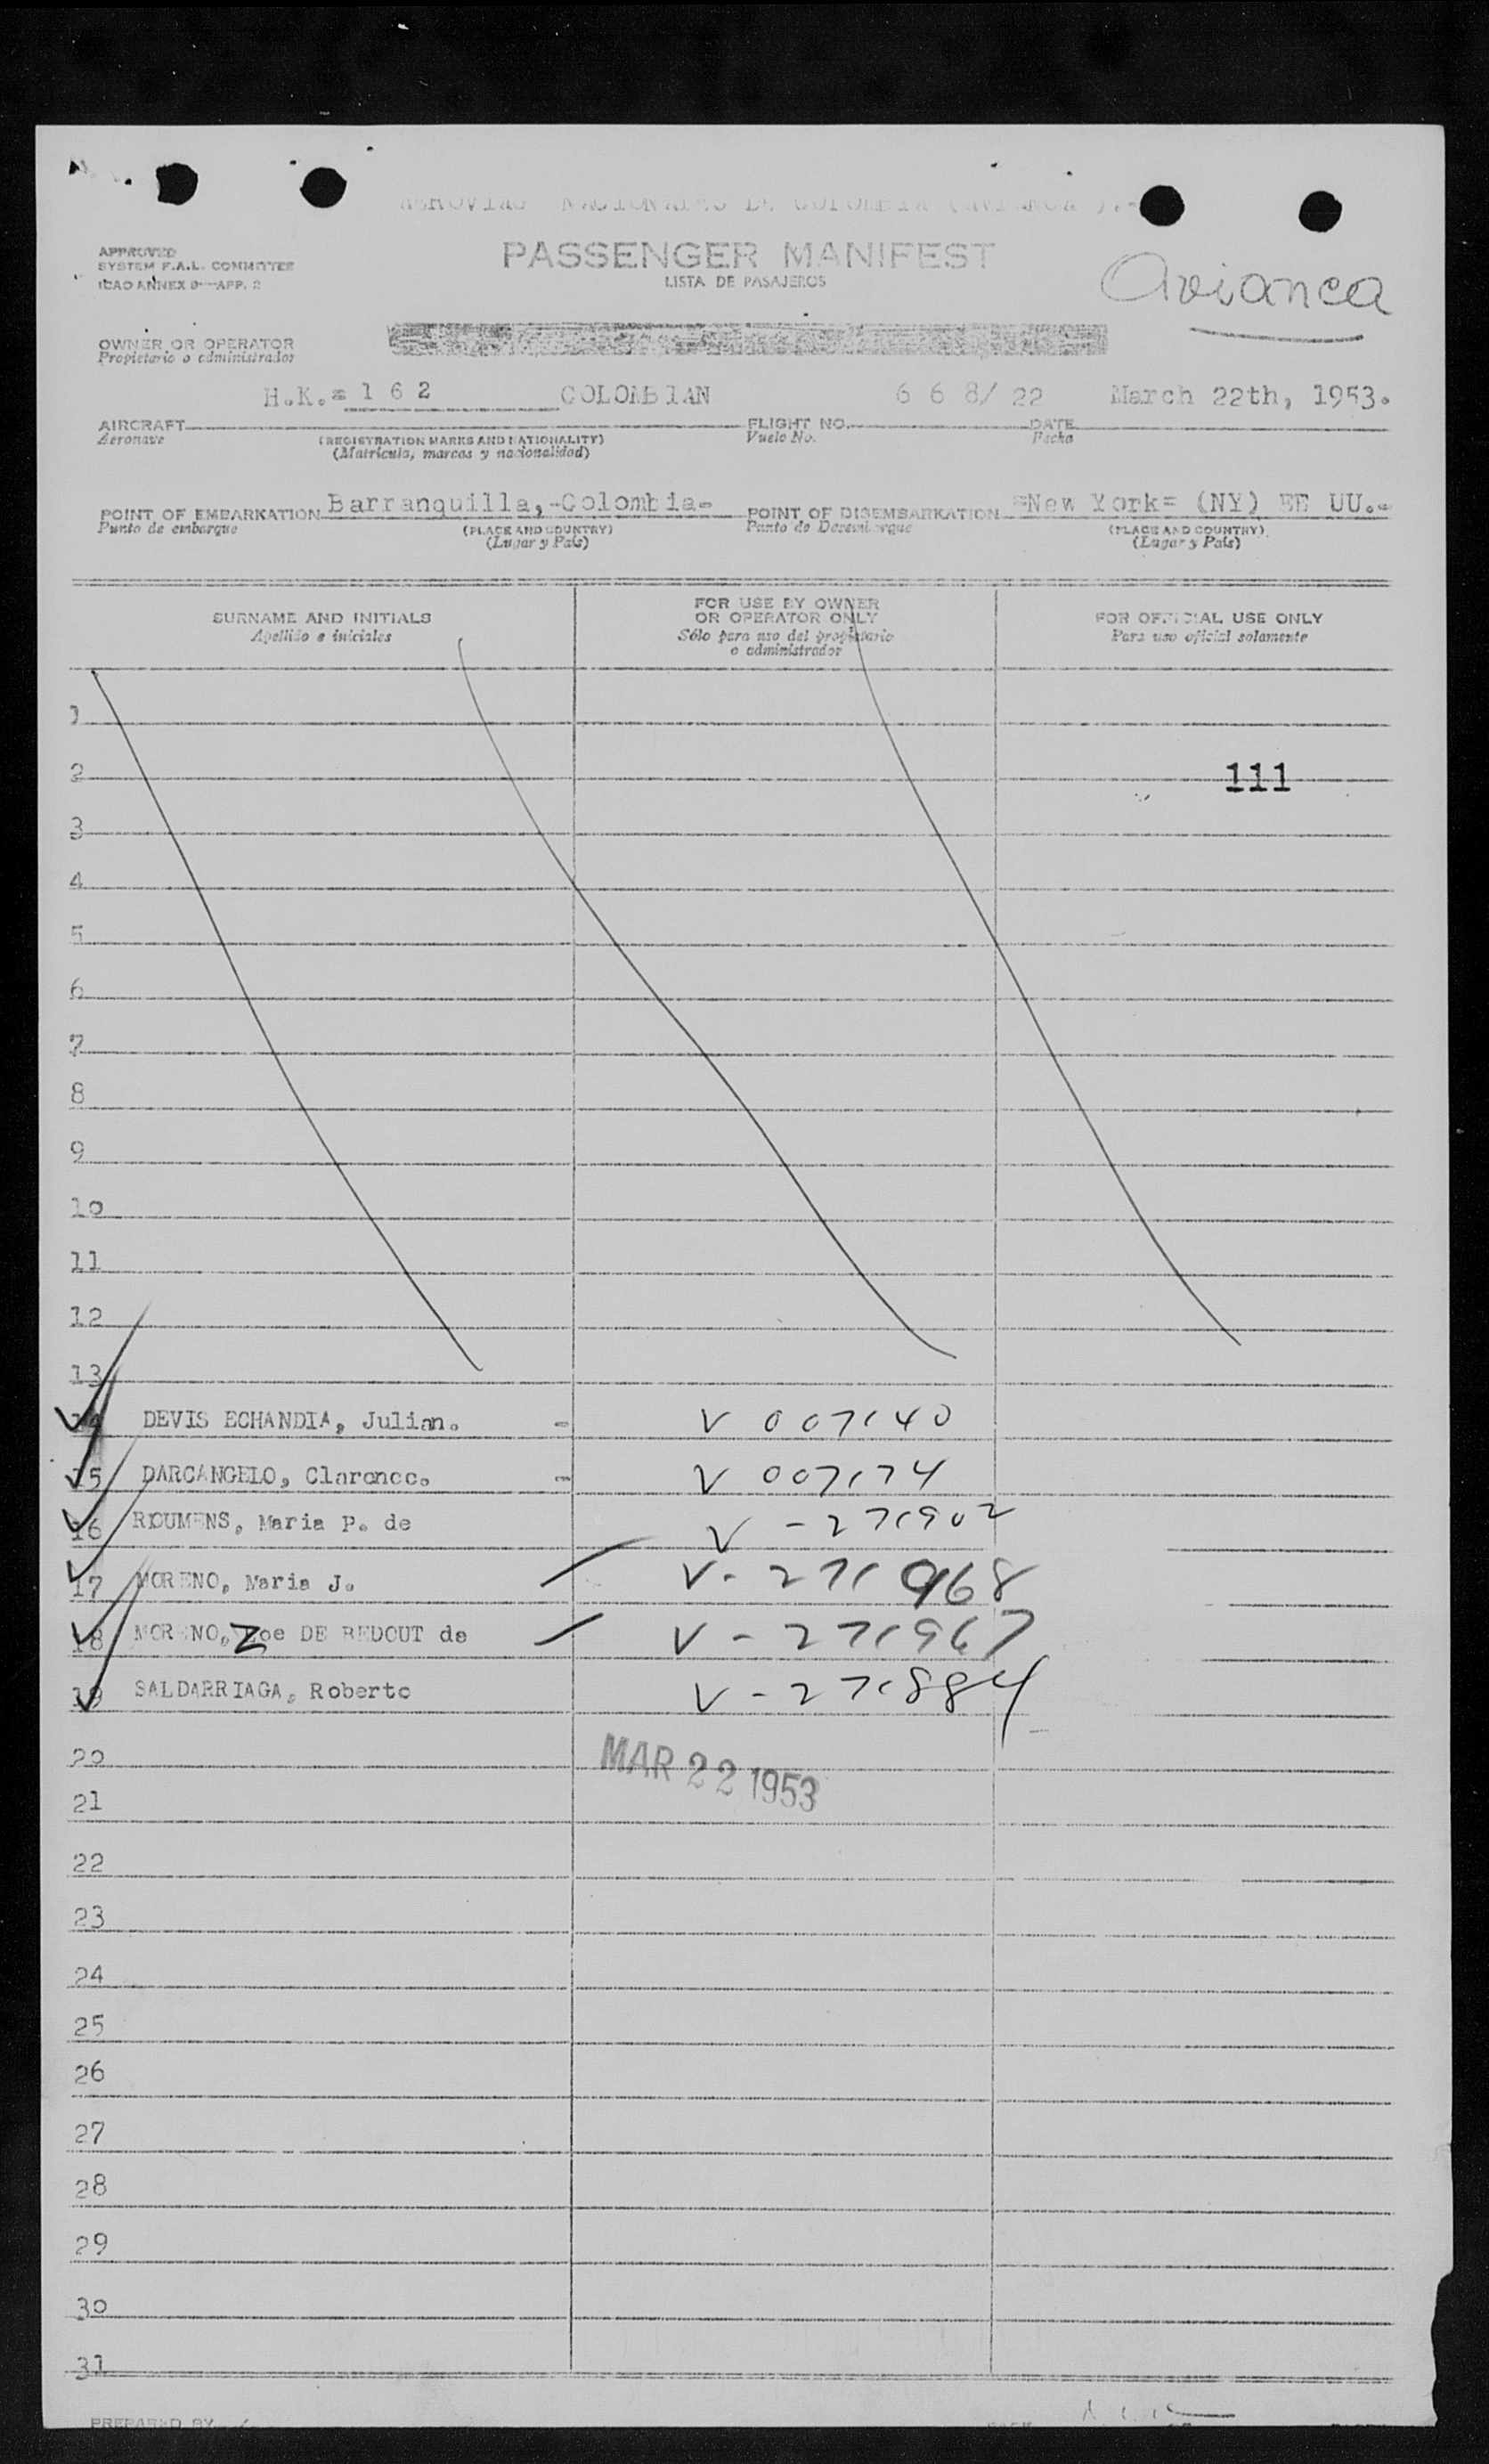 AEROVIAS NACIONALES DE COLOMBIA (AVIANCA).-
APPROVED
SYSTEM F.A.L. COMMITTEE
ICAO ANNEX 9—APP. 2
PASSENGER MANIFEST
LISTA DE PASAJEROS
Avianca
OWNER OR OPERATOR
Propietario o administrador
H.K.=162 COLOMBIAN 668/22 March 22th, 1953.
AIRCRAFT FLIGHT NO. DATE
Aeronave (REGISTRATION MARKS AND NATIONALITY) Vuelo No. Fecha
(Matrícula, marcas y nacionalidad)
POINT OF EMBARKATION Barranquilla,-Colombia- POINT OF DISEMBARKATION =New York= (NY) EE UU.-
Punto de embarque (PLACE AND COUNTRY) Punto de Desembarque (PLACE AND COUNTRY)
(Lugar y País) (Lugar y País)
SURNAME AND INITIALS
Apellido e iniciales
FOR USE BY OWNER
OR OPERATOR ONLY
Sólo para uso del propietario
o administrador
FOR OFFICIAL USE ONLY
Para uso oficial solamente
1
2 111
3
4
5
6
7
8
9
10
11
12
13
14 DEVIS ECHANDIA, Julian. - V 007140
15 DARCANGELO, Clarence. - V 007174
16 ROUMENS, Maria P. de V-271902
17 MORENO, Maria J. V-271968
18 MORENO, Zoe DE BEDOUT de V-271967
19 SALDARRIAGA, Roberto V-271884
20 MAR 22 1953
21
22
23
24
25
26
27
28
29
30
31
PREPARED BY